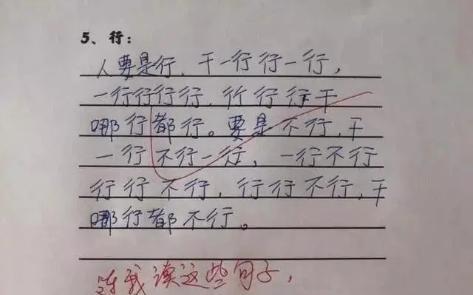 5、行：
人要是行，干一行行一行，
一行行行行，行行行干
哪行都行。要是不行，干
一行不行一行，一行不行
行行不行，行行不行，干
哪行都不行。
请我读这些句子，